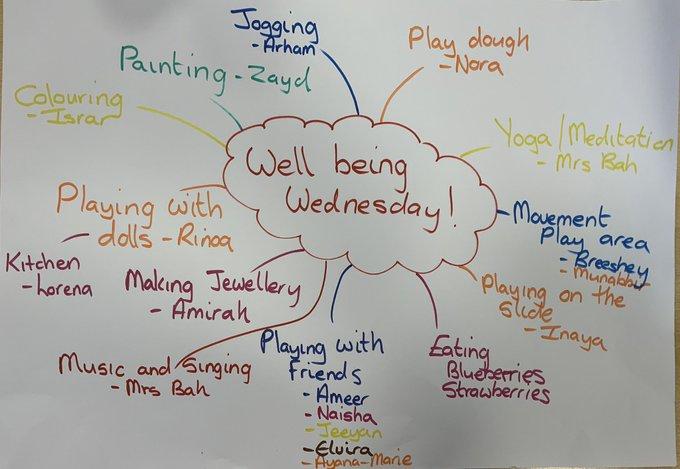 Jogging
- Arham
Play dough
- Nora
Painting - Zayd
Colouring
- Israr
Yoga/Meditation
- Mrs Bah
Well being
Wednesday!
Playing with
dolls - Rinoa
Movement
Play area
- Breeshey
Kitchen
- Lorena
Making Jewellery
- Amirah
Playing on the
slide
- Inaya
Music and singing
- Mrs Bah
Playing with
friends
- Ameer
- Naisha
- Jeeyan
- Elvira
- Ayana-Marie
Eating
Blueberries
Strawberries